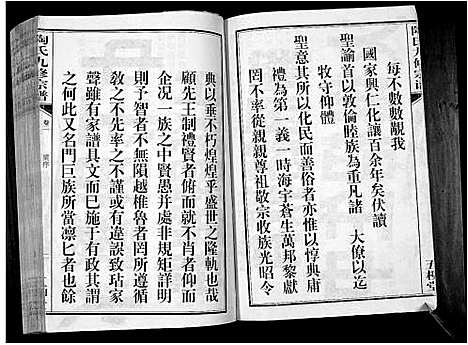 陶氏九修宗譜
五柳堂
每不數數覯我
國家興仁化讓百余年矣伏讀
聖諭首以敦倫睦族為重凡諸 大僚以迄
牧守仰體
聖意其所以化民而善俗者亦惟以惇典庸
禮為第一義一時海宇蒼生萬邦黎獻
罔不率從親親尊祖敬宗收族光昭令
典以垂不朽煌煌乎盛世之隆軌也或
顧先王制禮賢者俯而就不肖者仰而
企況一族之中賢愚并處非規矩詳明
則予智者不無隕越椎魯者罔所遵循
教之不先率之不謹或有後致玷家
聲雖有家譜具文而已施于有政其謂
之何此又名門巨族所當凜匕者也餘
陶氏九修宗譜
卷二
舊序